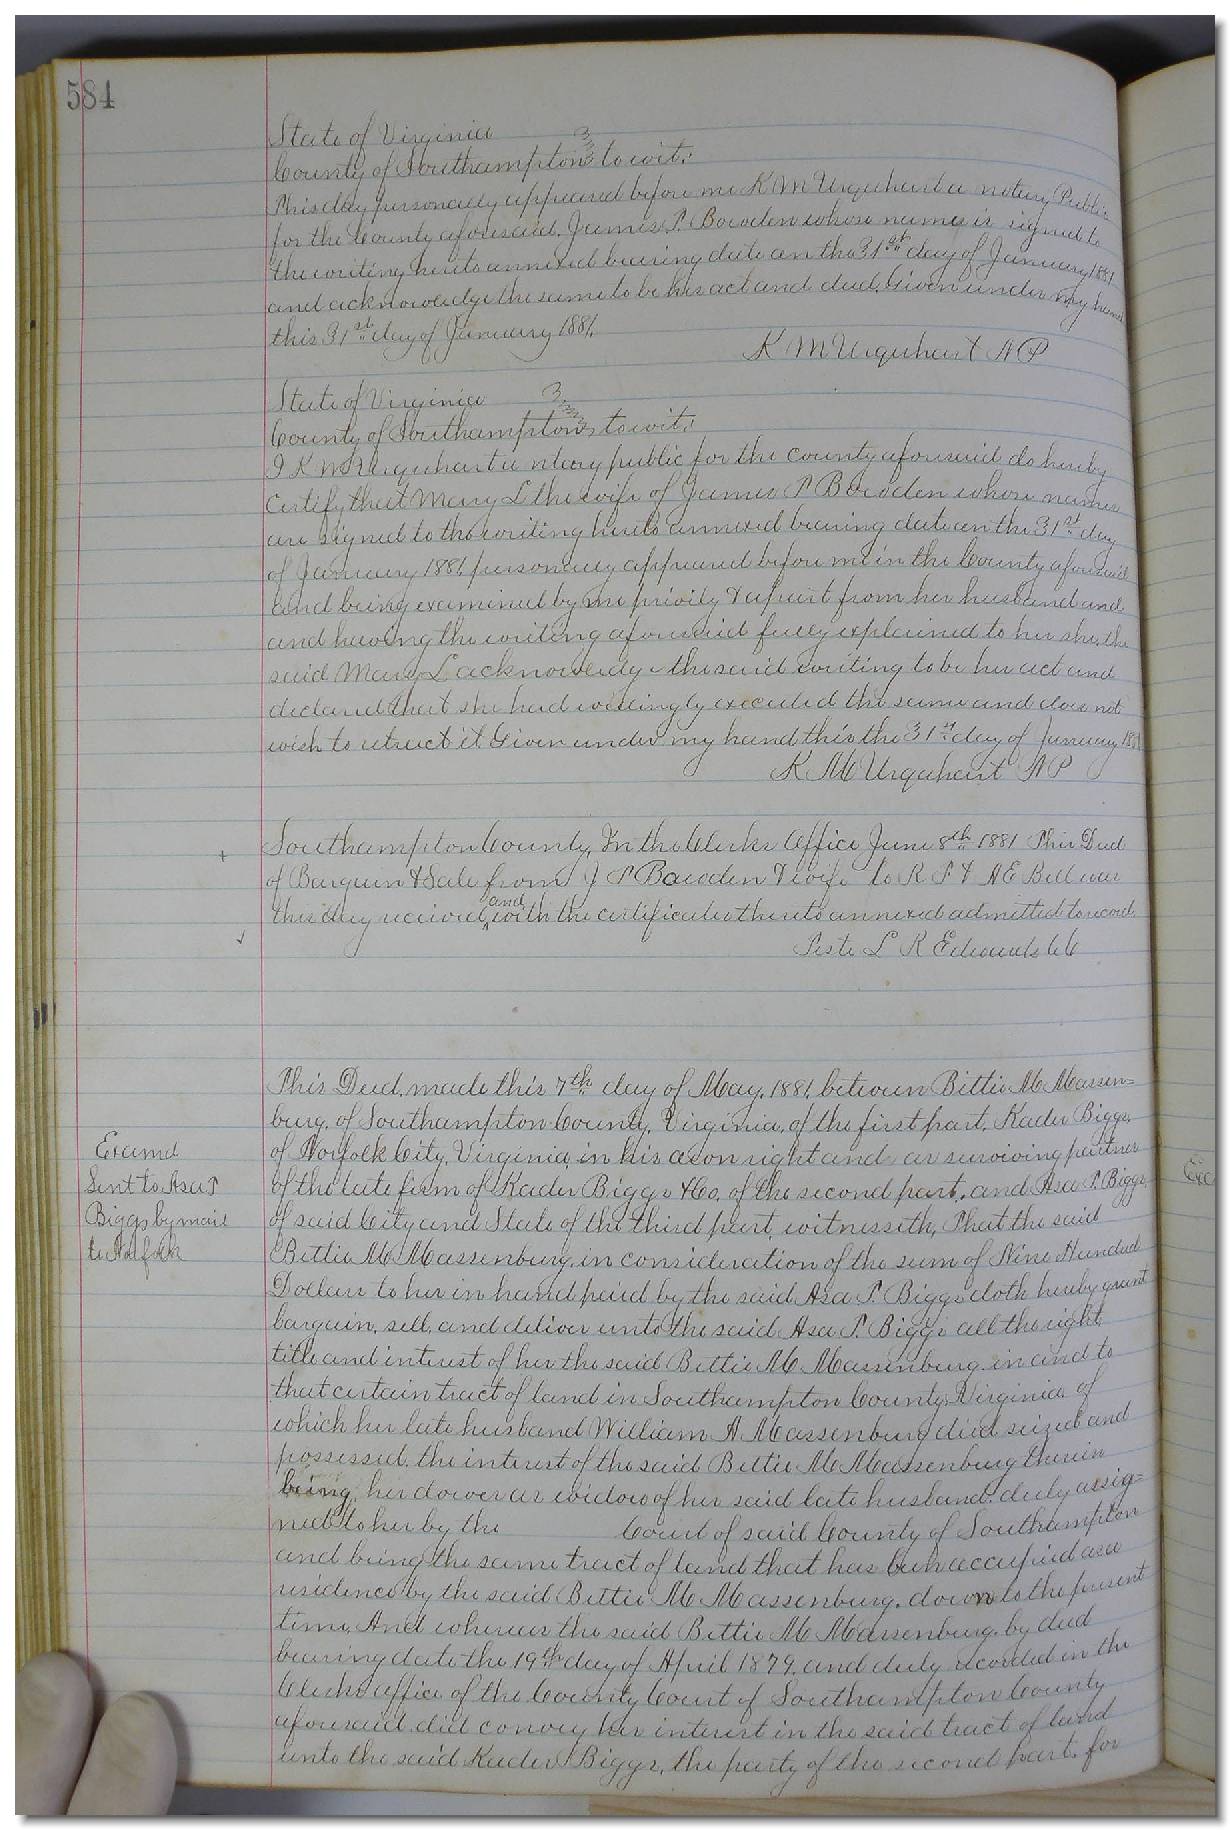 584
State of Virginia
County of Southampton to wit:
This day personally appeared before me K M Urquhart a notary Public
for the County aforesaid. James P. Bowden whose name is signed to
the writing hereto annexed bearing date on the 31st day of January 1881
and acknowledge the same to be his act and deed. Given under my hand
this 31st day of January 1881.
K M Urquhart N P
State of Virginia
County of Southampton, to wit:
I K M Urquhart a notary public for the County aforesaid do hereby
Certify that Mary L the wife of James P Bowden whose names
are signed to the writing hereto annexed bearing date on the 31st day
of January 1881 personally appeared before me in the County aforesaid
and being examined by me privily & apart from her husband and
and having the writing aforesaid fully explained to her she, the
said Mary L acknowledge the said writing to be her act and
declared that she had willingly executed the same and does not
wish to retract it Given under my hand this the 31st day of January 1881
K M Urquhart N P
Southampton County, In the Clerks Office June 8th 1881 This Deed
of Bargain & Sale from J P Bowden & wife to R F & A E Bell was
this day received and with the certificates thereto annexed admitted to record.
Teste L R Edwards CC
This Deed, made this 7th day of May, 1881, between Bettie M Massen=
burg, of Southampton County, Virginia, of the first part, Kader Biggs,
of Norfolk City, Virginia, in his own right and as surviving partner
of the late firm of Kader Biggs & Co. of the second part, and Asa P. Biggs,
of said City and State of the third part, witnesseth, That the said
Bettie M. Massenburg, in consideration of the sum of Nine Hundred
Dollars to her in hand paid by the said Asa P. Biggs doth hereby grant
bargain, sell, and deliver unto the said Asa P. Biggs all the right
title and interest of her the said Bettie M Massenburg in and to
that certain tract of land in Southampton County, Virginia of
which her late husband William A Massenburg died seized and
possessed, the interest of the said Bettie M Massenburg therein
being, her dower as widow of her said late husband, duly assig=
ned to her by the Court of said County of Southampton
and being the same tract of land that has been occupied as a
residence by the said Bettie M Massenburg, down to the present
time. And whereas the said Bettie M Massenburg, by deed
bearing date the 19th day of April 1879, and duly recorded in the
Clerks office of the County Court of Southampton County
aforesaid, did convey her interest in the said tract of land
unto the said Kader Biggs, the party of the second part, for
Examd
Sent to Asa P
Biggs by mail
to Norfolk